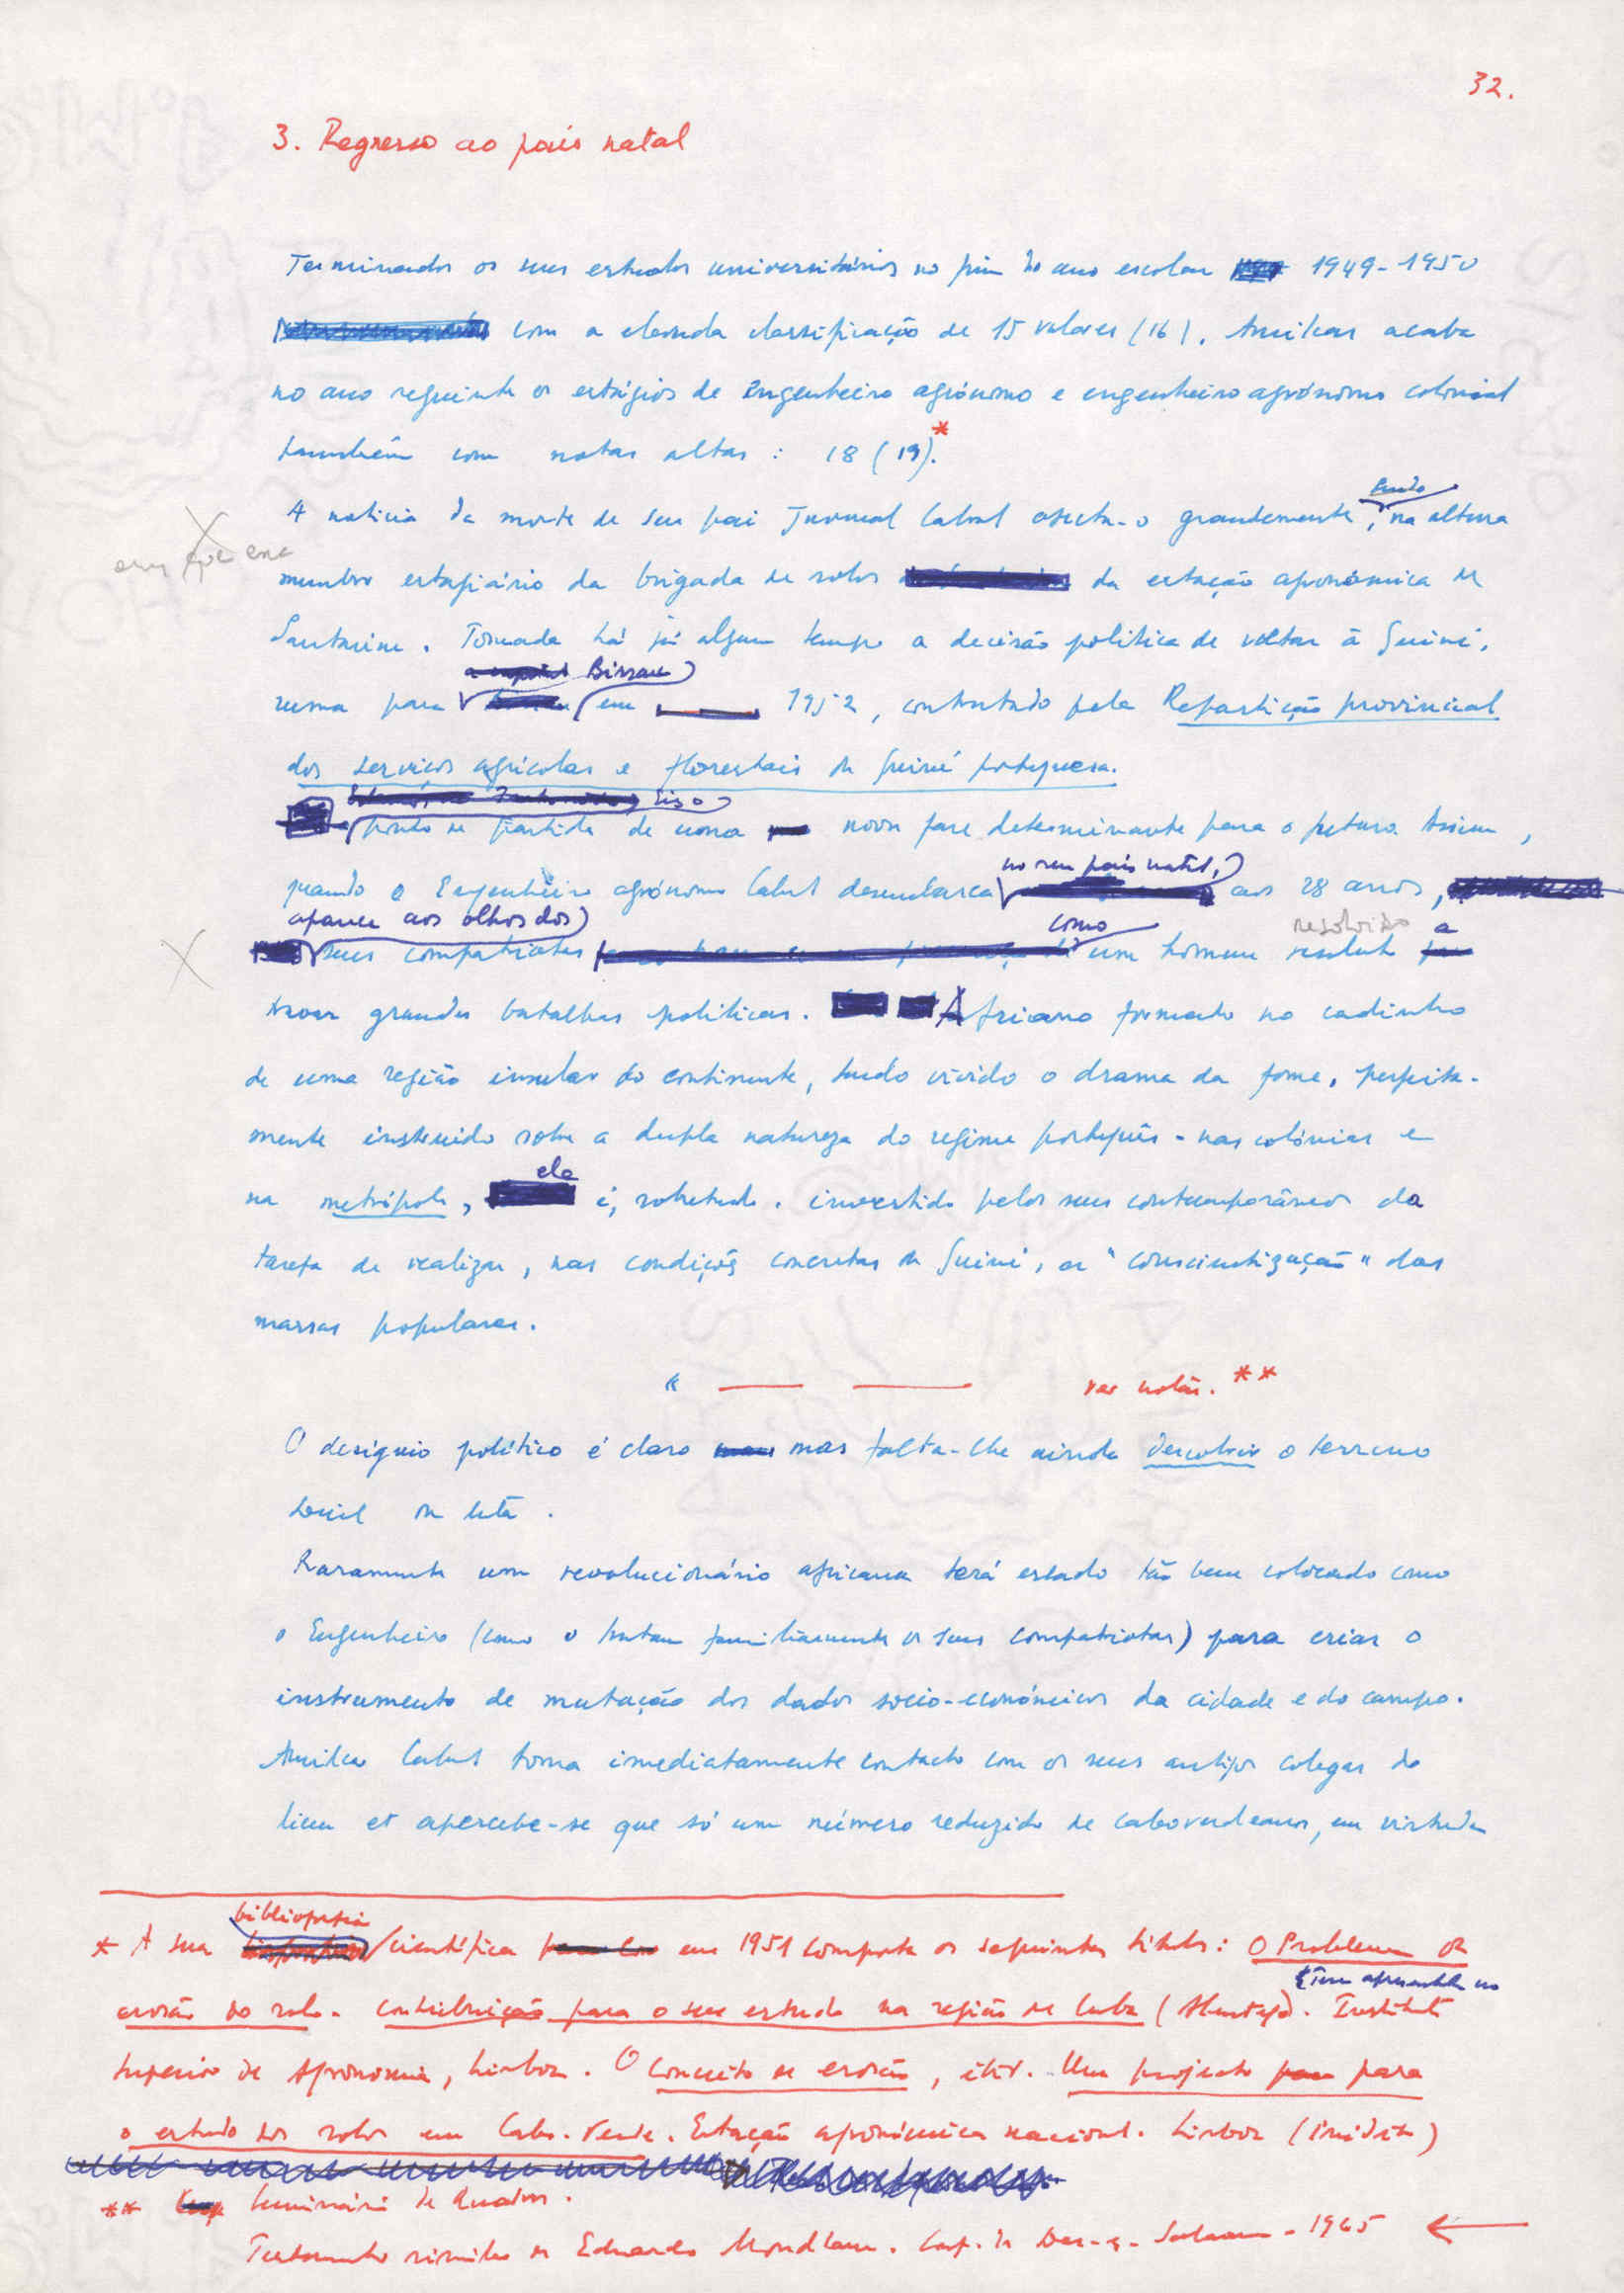 32.
3. Regresso ao país natal
Terminados os seus estudos universitários no fim do ano escolar 1949-1950
com a elevada classificação de 15 valores (16). Amilcar acaba
no ano seguinte os estágios de Engenheiro agrónomo e engenheiro agrónomo colonial
também com notas altas : 18 (19).*
sendo
A noticia da morte de seu pai Juvenal Cabral afecta-o grandemente, na altura
em que era
membro estagiário da brigada de solos da estação agronómica de
Santarém. Tomada há já algum tempo a decisão politica de voltar à Guiné,
Bissau
ruma para em 1952, contratado pela Repartição provincial
dos serviços agrícolas e florestais da Guiné portuguesa.
Eis o
ponto de partida de uma nova fase determinante para o futuro. Assim,
no seu país natal,
quando o Engenheiro agrónomo Cabral desembarca aos 28 anos,
aparece aos olhos dos como resolvido a
seus compatriotas um homem resoluto
travar grandes batalhas politicas. Africano formado no cadinho
de uma região insular do continente, tendo vivido o drama da fome, perfeita-
mente instruido sobre a dupla natureza do regime português - nas colónias e
ele
na metrópole, é, sobretudo, investido pelos seus contemporâneos da
tarefa de realizar, nas condições concretas da Guiné, a "consciencização" das
massas populares.
" ver notas. **
O desígnio político é claro mas falta-lhe ainda descobrir o terreno
social da luta.
Raramente um revolucionário africano terá estado tão bem colocado como
o Engenheiro (como o tratam familiarmente os seus compatriotas) para criar o
instrumento de mutação dos dados socio-económicos da cidade e do campo.
Amilcar Cabral toma imediatamente contacto com os seus antigos colegas do
liceu et apercebe-se que só um número reduzido de caboverdeanos, em virtude da
bibliografia
* A sua científica em 1951 comporta os seguintes titulos : O Problema da
erosão do solo. Contribuição para o seu estudo na região de Cuba (Alentejo). Instituto
Superior de Agronomia, Lisboa. O Conceito de erosão, idem. Um projecto para
o estudo dos solos em Cabo-Verde. Estação agronómica nacional. Lisboa (inédito)
** Seminário de Quadros.
Testemunho similar de Eduardo Mondlane. Conf. de Dar-es-Salaam - 1965